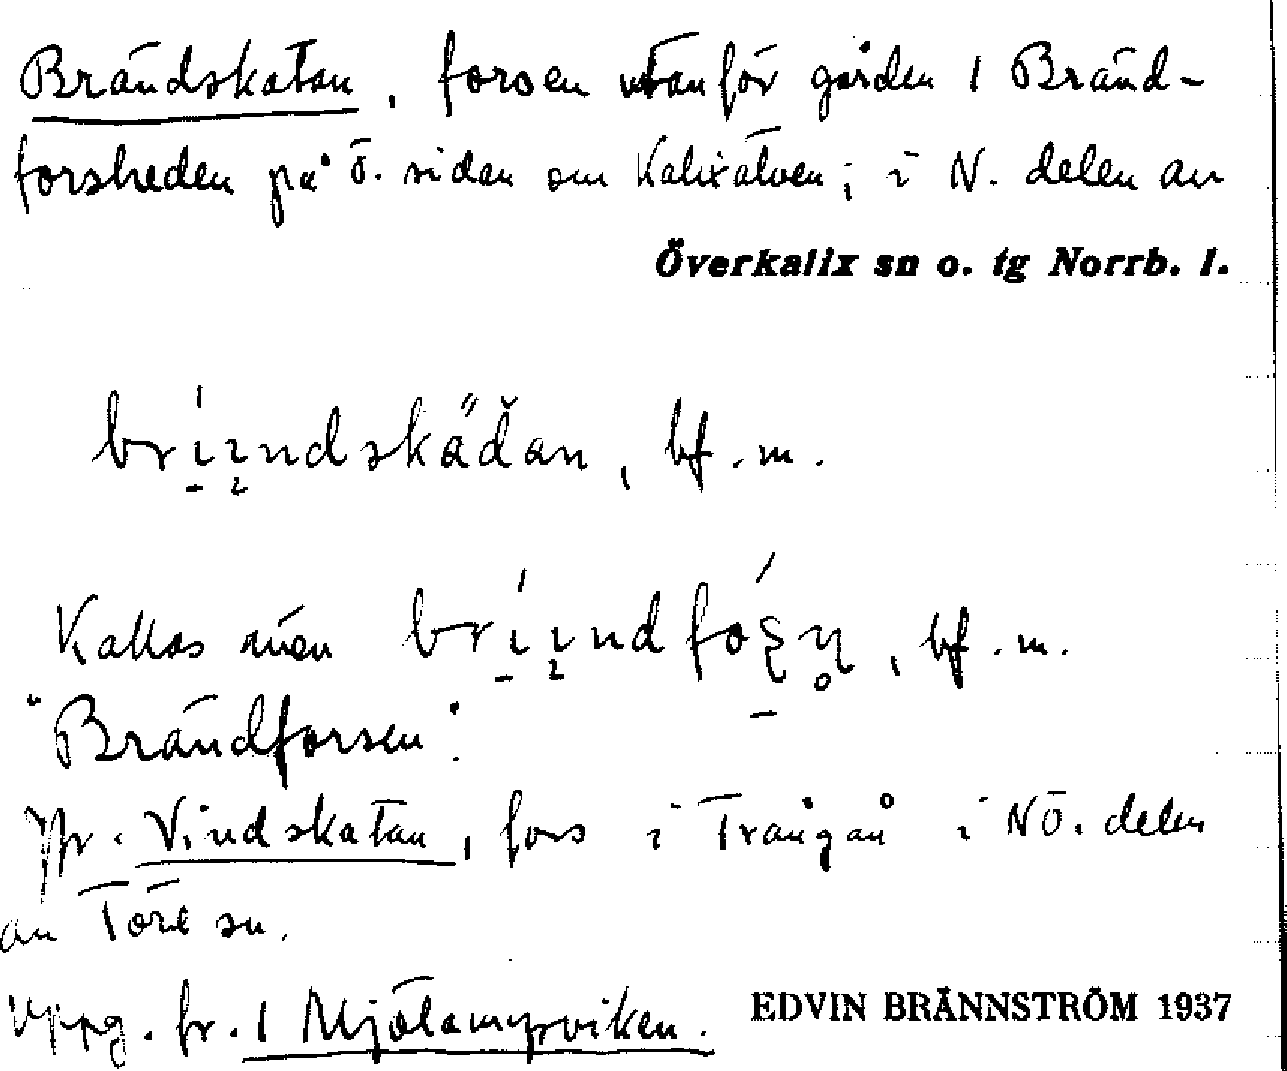 Brändskatan, forsen utanför gården 1 Bränd-
forsheden på ö. sidan om Kalixälven; i N. delen av
Överkalix sn o. tg Norrb. l.
bf. m.
Kallas även bf. m.
"Brändforsen".
Jfr. Vindskatan, fors i Trångån i NÖ. delen
av Töre sn.
Uppg. fr. 1 Mjölamyrviken.
EDVIN BRÄNNSTRÖM 1937